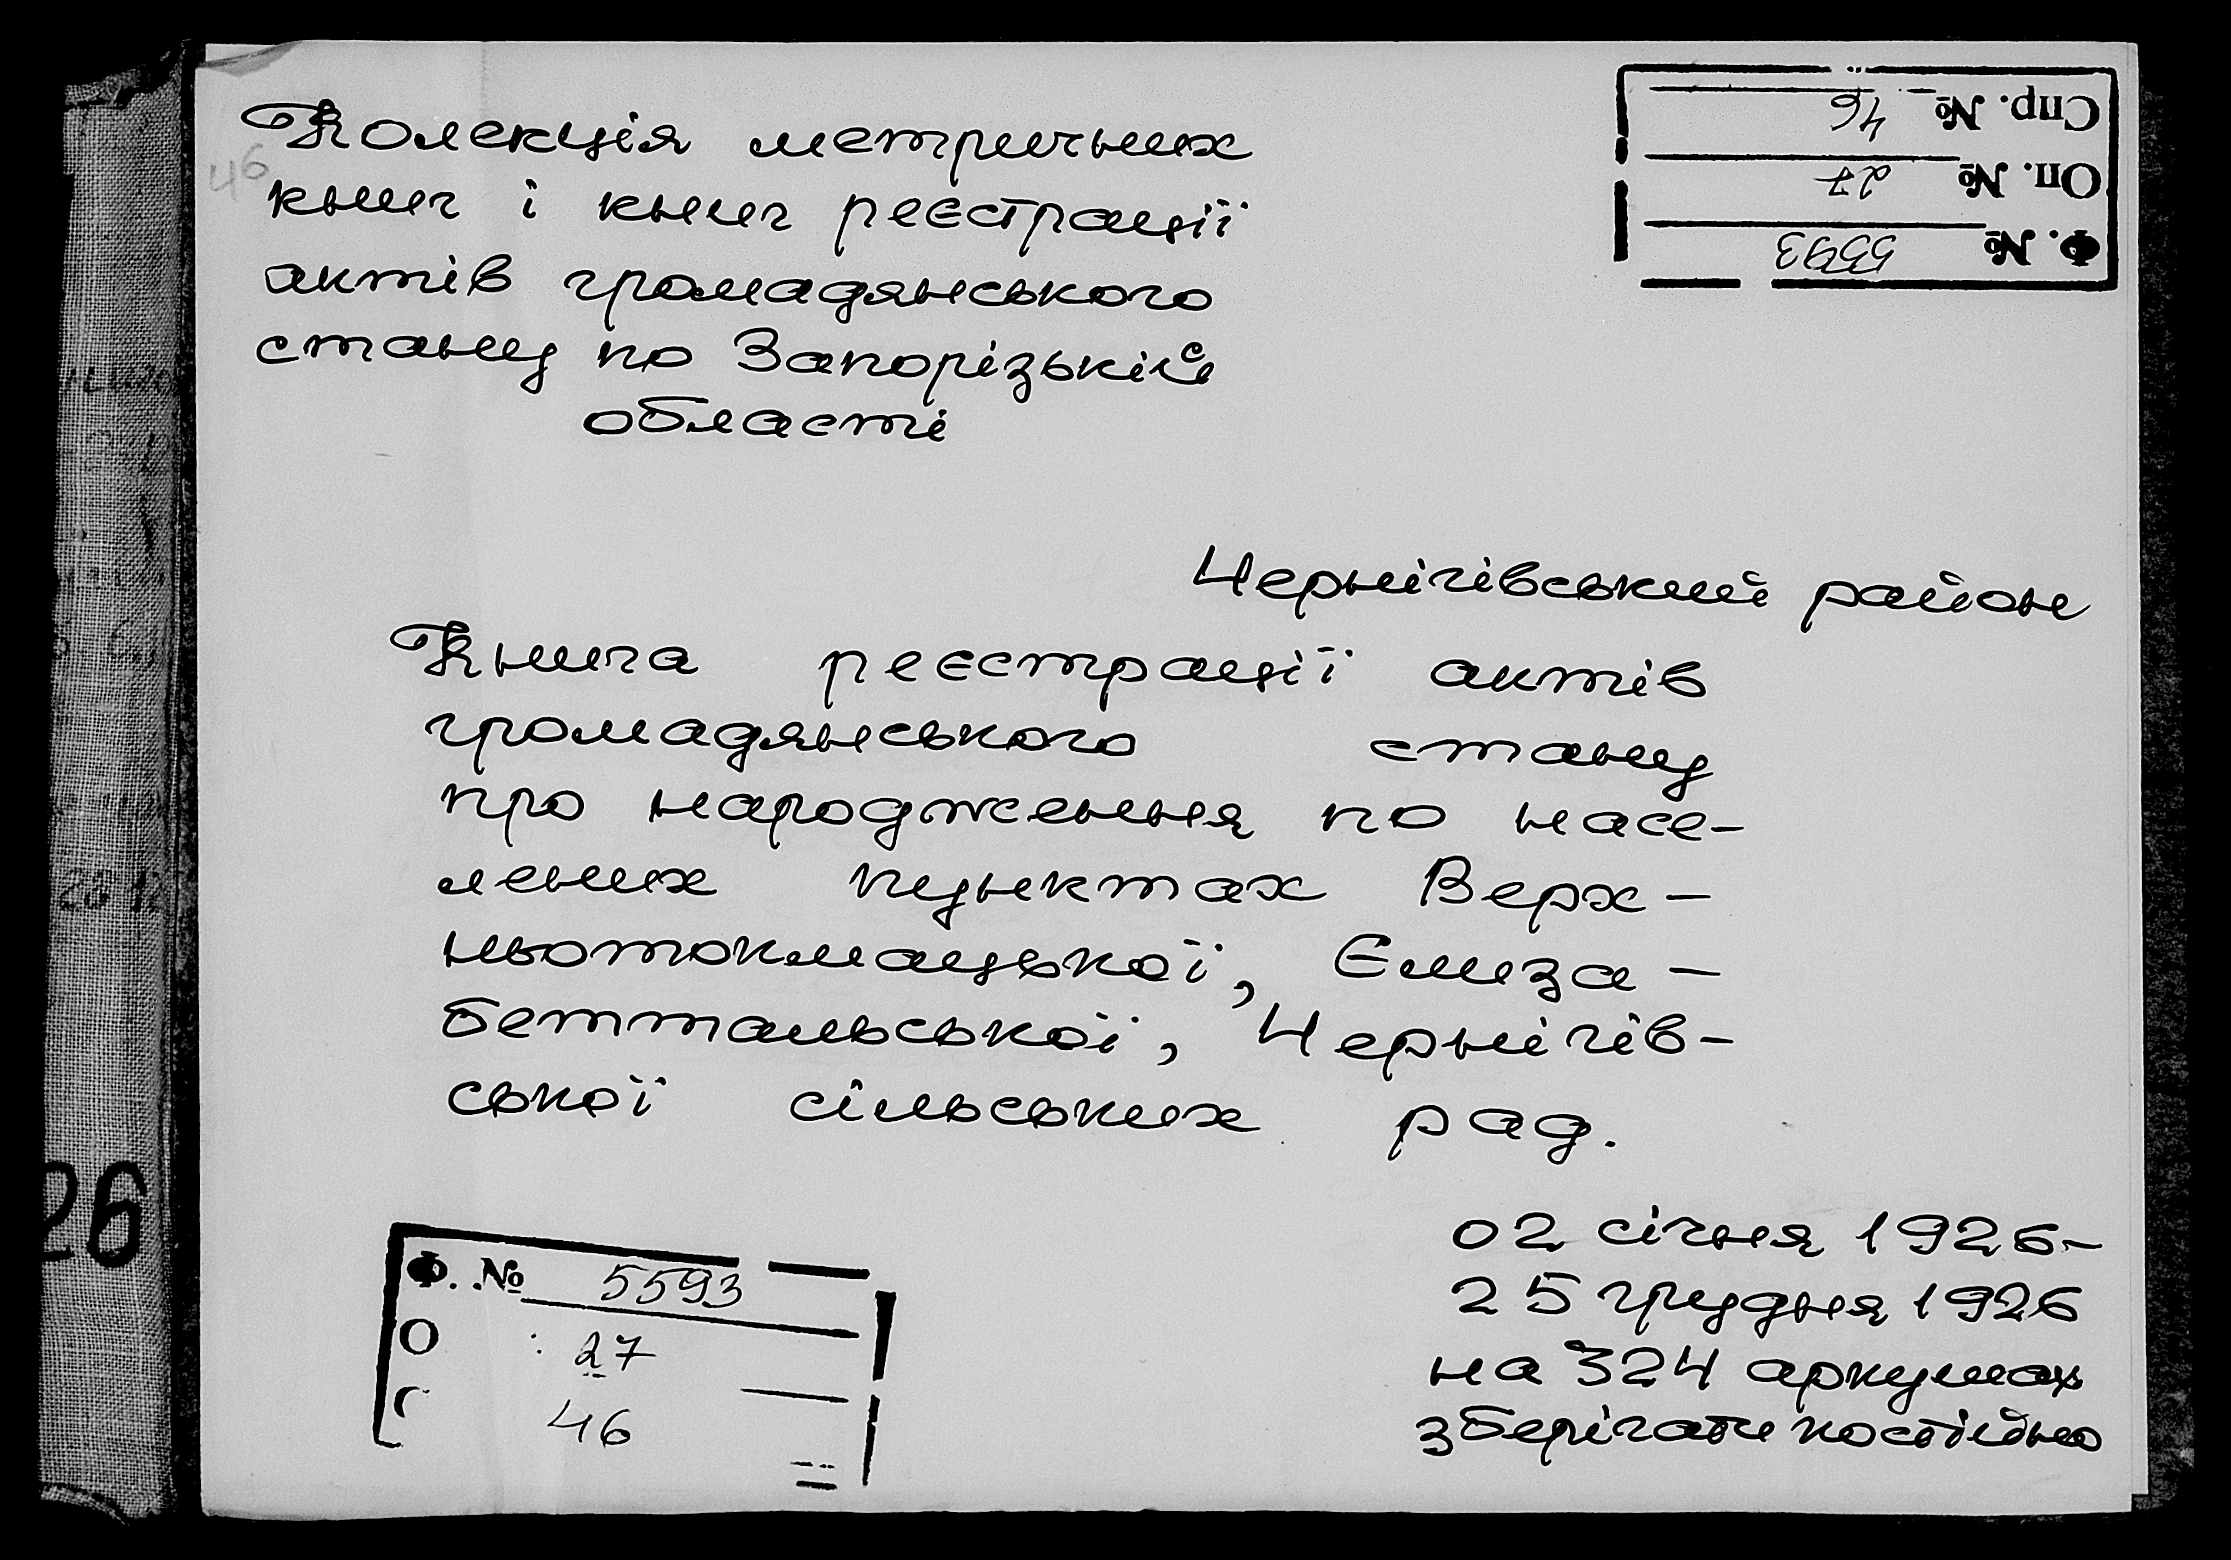 Колекція метричних
46
книг і книг реєстрації
актів громадянського
стану по Запорізькій
області
Спр. № 46
Оп. № 27
Ф. № 5593
Чернігівський район
Книга реєстрації актів
громадянського стану
про народження по насе-
лених пунктах Верх-
ньотокмацької, Єлиза-
беттальської, Чернігів-
ської сільських рад.
02 січня 1926-
25 грудня 1926
на 324 аркушах
зберігати постійно
Ф. № 5593
О 27
46
26